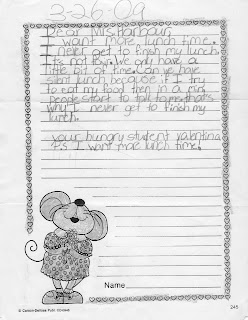 2-26-09
Dear Ms. Harbour,
I want more lunch time.
I never get to finish my lunch.
It's not fair. We only have a
little bit of time. Can we have
silent lunch because if I try
to eat my food then in a min
people start to talk to me that's
why I never get to finish my
lunch.
your hungry student valentina
P.S. I want more lunch time.
Name
© Carson-Dellosa Publ.
245